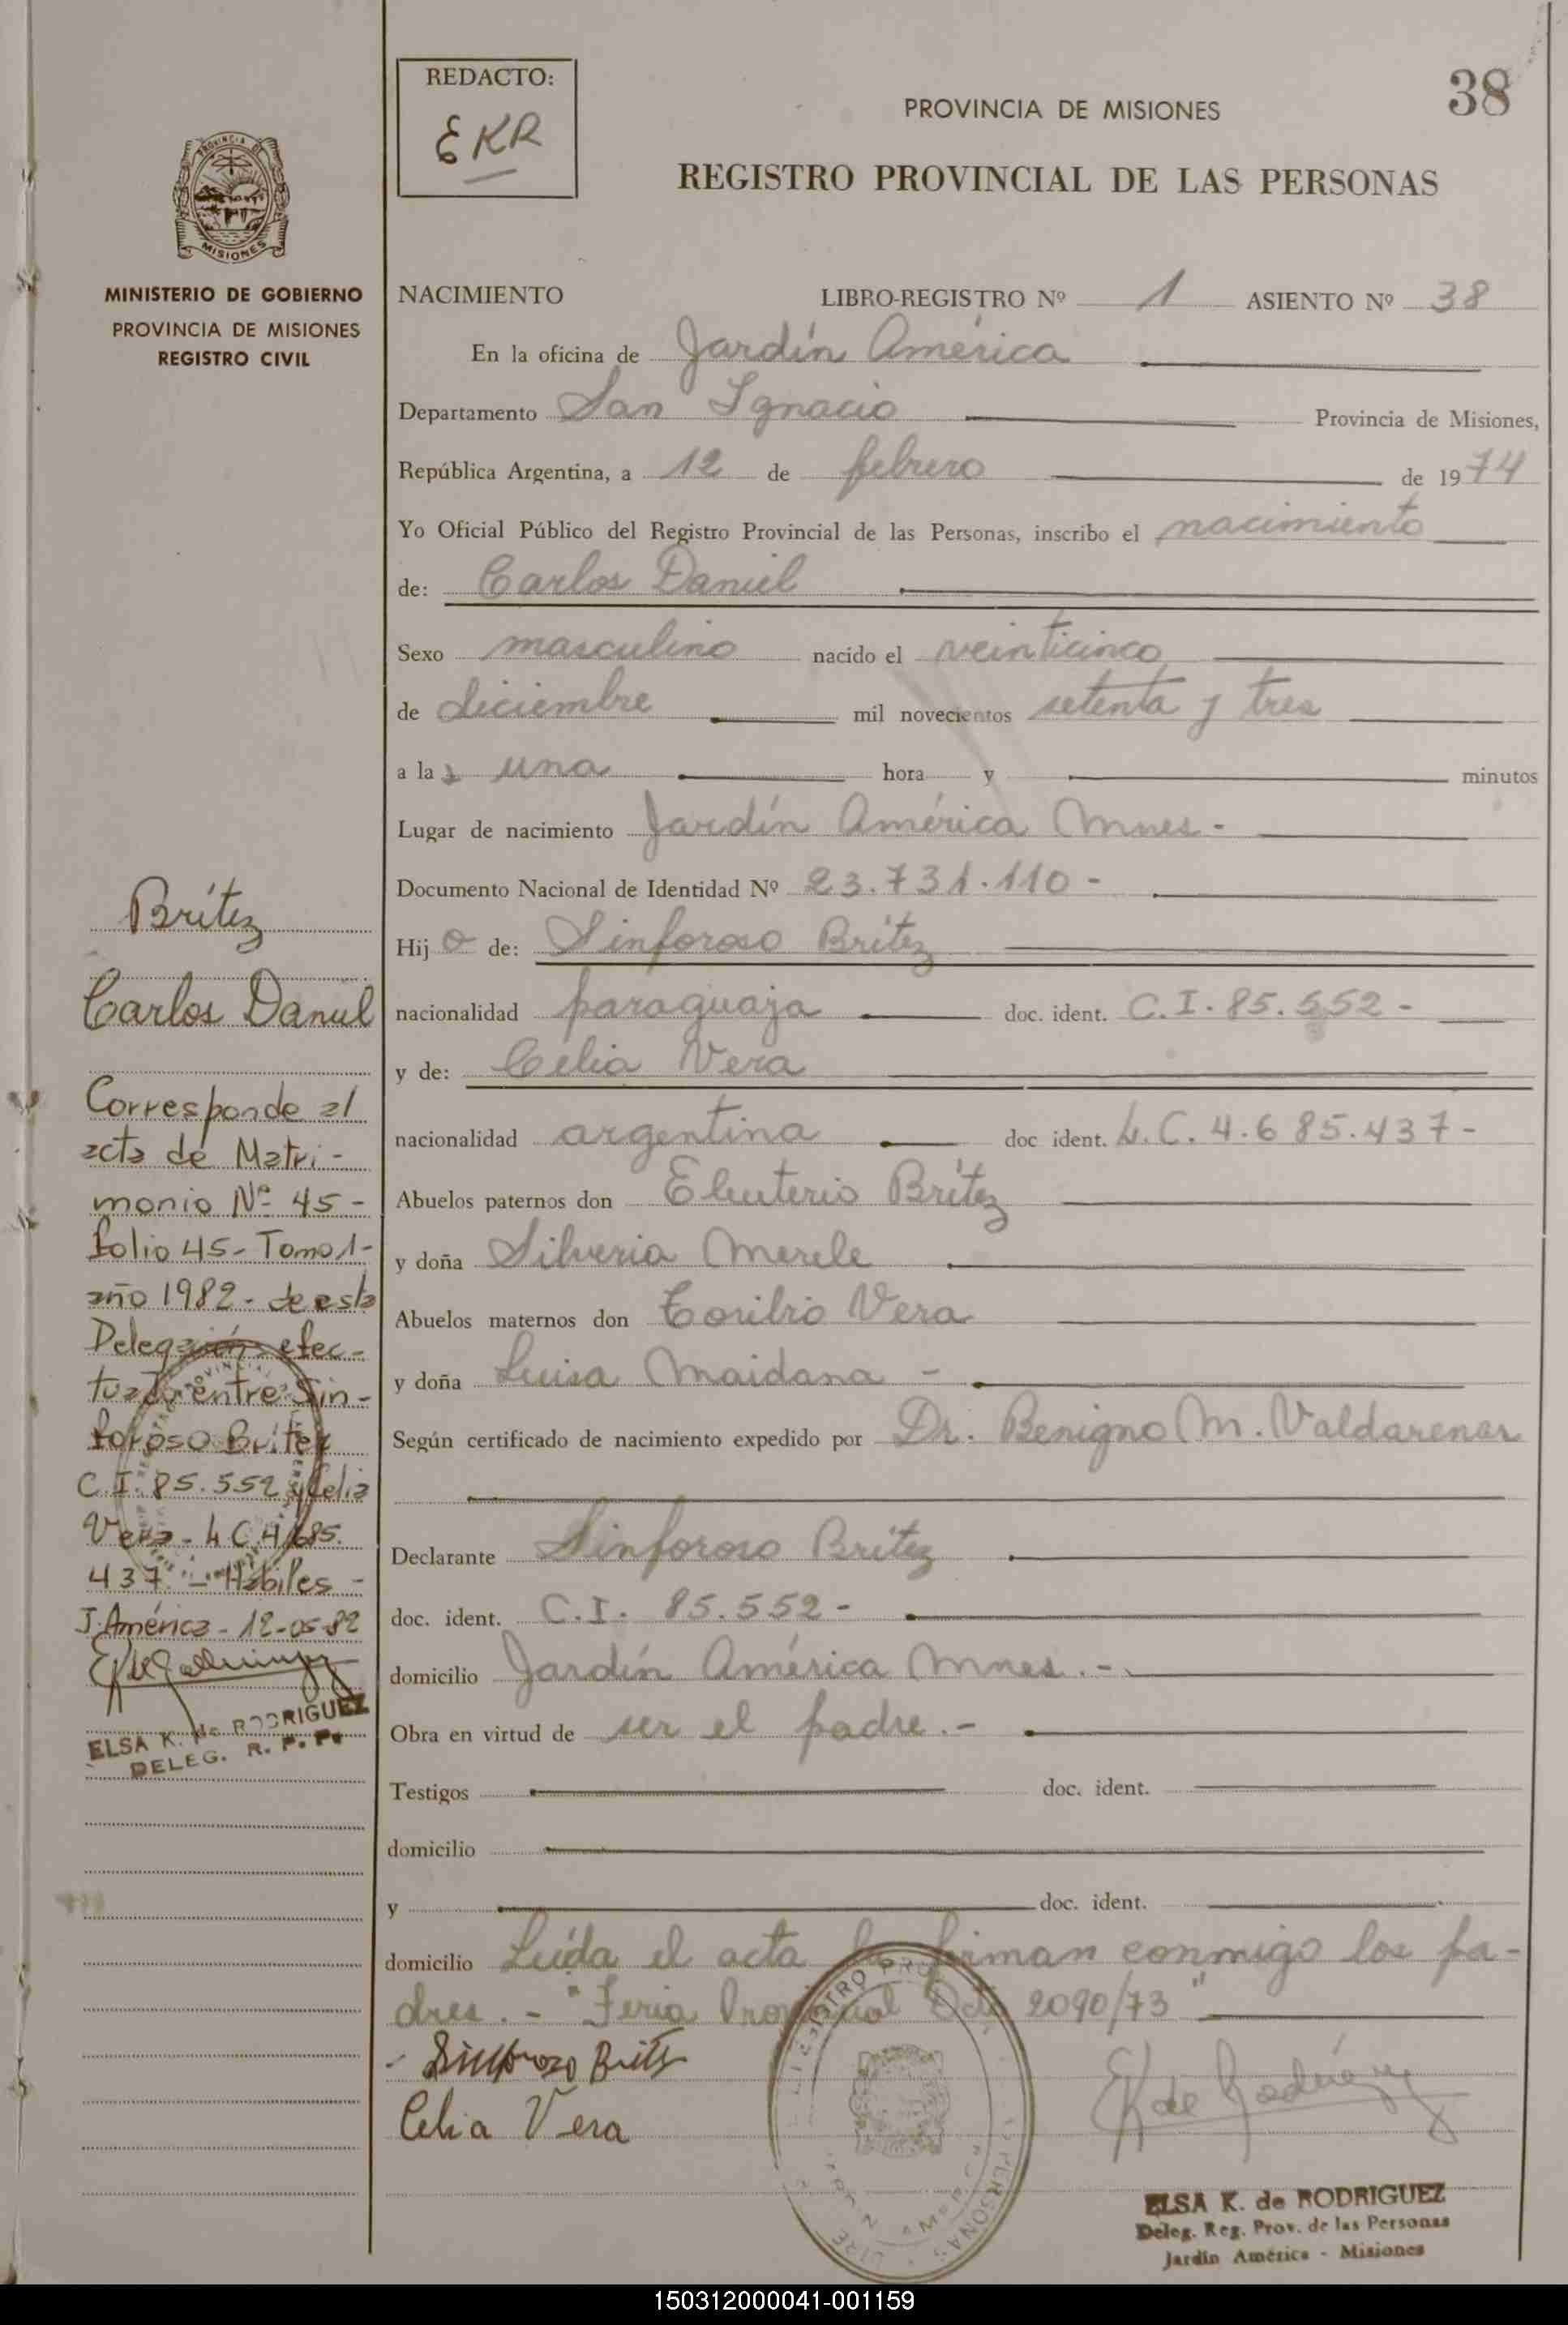 REDACTO:
EKR
38
PROVINCIA DE MISIONES
REGISTRO PROVINCIAL DE LAS PERSONAS
PROVINCIA DE
MISIONES
MINISTERIO DE GOBIERNO
PROVINCIA DE MISIONES
REGISTRO CIVIL
NACIMIENTO LIBRO-REGISTRO Nº 1 ASIENTO Nº 38
En la oficina de Jardín América
Departamento San Ignacio Provincia de Misiones,
República Argentina, a 12 de febrero de 1974
Yo Oficial Público del Registro Provincial de las Personas, inscribo el nacimiento
de: Carlos Daniel
Sexo masculino nacido el veinticinco
de diciembre mil novecientos setenta y tres
a la s una hora y minutos
Lugar de nacimiento Jardín América Mnes-
Documento Nacional de Identidad Nº 23.731.110-
Hij o de: Sinforoso Brítez
nacionalidad paraguaya doc. ident. C.I. 85.552-
y de: Celia Vera
nacionalidad argentina doc ident. L.C. 4.685.437-
Abuelos paternos don Eleuterio Brítez
y doña Silveria Merele
Abuelos maternos don Toribio Vera
y doña Luisa Maidana -
Según certificado de nacimiento expedido por Dr. Benigno M. Valdarenas
Declarante Sinforoso Brítez
doc. ident. C.I. 85.552-
domicilio Jardín América Mnes.-
Obra en virtud de ser el padre.-
Testigos doc. ident.
domicilio
y doc. ident.
domicilio Leída el acta la firman conmigo los pa-
dres.- "Feria Provincial Dto 2090/73"
Sinforozo Britez
Celia Vera
EK de Rodríguez
ELSA K. de RODRIGUEZ
Deleg. Reg. Prov. de las Personas
Jardín América - Misiones
Brítez
Carlos Daniel
Corresponde al
acta de Matri-
monio Nº 45-
folio 45- Tomo 1-
año 1982- de esta
Delegación efec-
tuado entre Sin-
foroso Britez
C.I. 85.552 y Celia
Vera- L C.4.685.
437 - Hábiles -
J. América - 12-05-82
ELSA K. de RODRIGUEZ
DELEG. R. P. P.
150312000041-001159